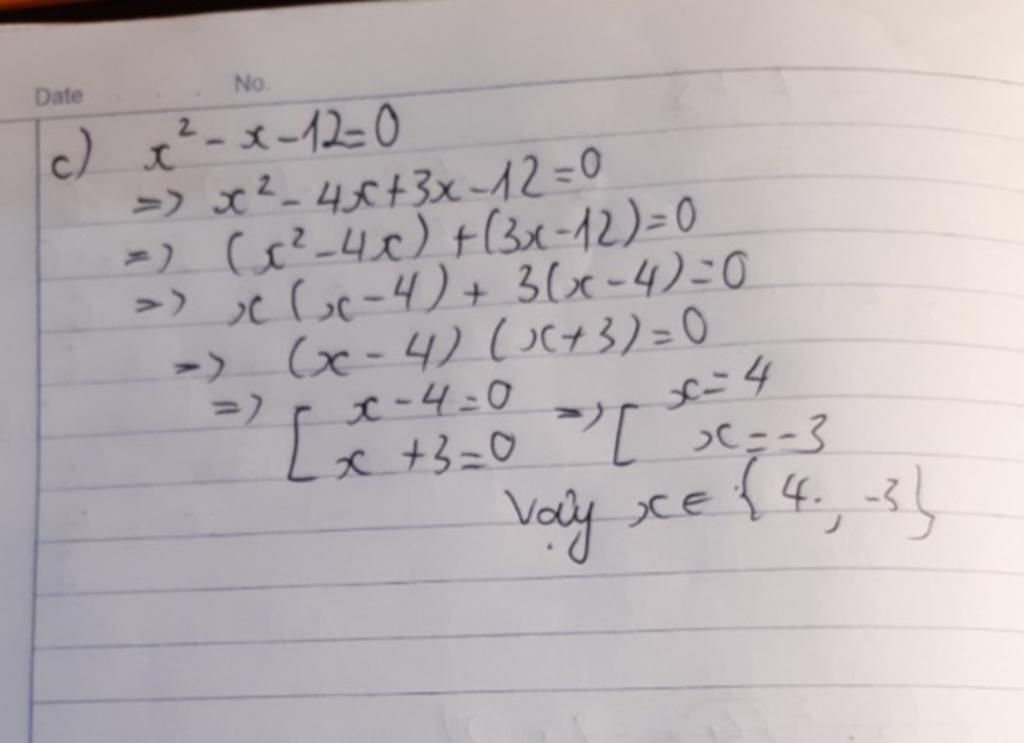 Date No.
c) x² - x - 12 = 0
=> x² - 4x + 3x - 12 = 0
=> (x² - 4x) + (3x - 12) = 0
=> x (x - 4) + 3(x - 4) = 0
=> (x - 4) (x + 3) = 0
=> [ x - 4 = 0 => [ x = 4
x + 3 = 0 x = -3
Vậy x ∈ {4 ; -3}